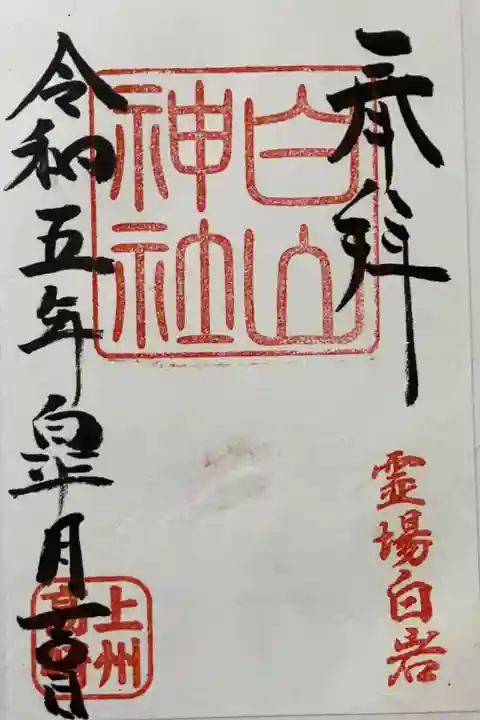 奉拝
霊場白岩
白山
神社
令和五年皐月
日
上州
高